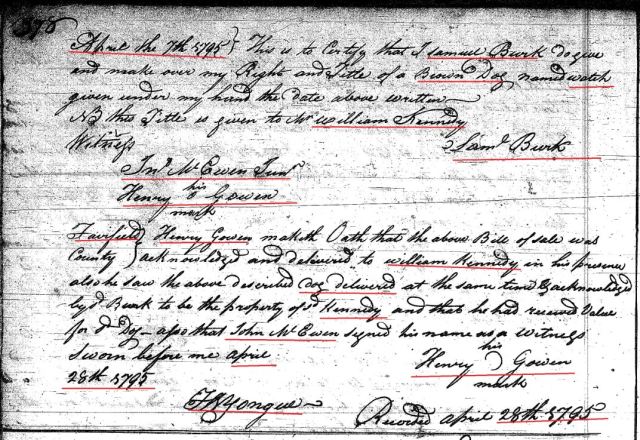 April the 7th 1795 } This is to Certify that I Samuel Burk do give
and make over my Right and Title of a Brown Dog named watch
given under my hand the date above written
NB this Title is given to Mr William Kennedy
Witness Saml Burk
Jno McEwen Junr
his
Henry Gowen
mark
Fairfield } Henry Gowen maketh Oath that the above Bill of sale was
County } acknowledgd and delivered to william Kennedy in his presence
also he saw the above described dog delivered at the same time & acknowledgd
by sd Burk to be the property of sd Kennedy and that he had received Value
for sd Dog also that John McEwen signed his name as a Witness
Sworn before me april
28th 1795
his
Henry ) Gowen
mark
Recorded april 28th 1795